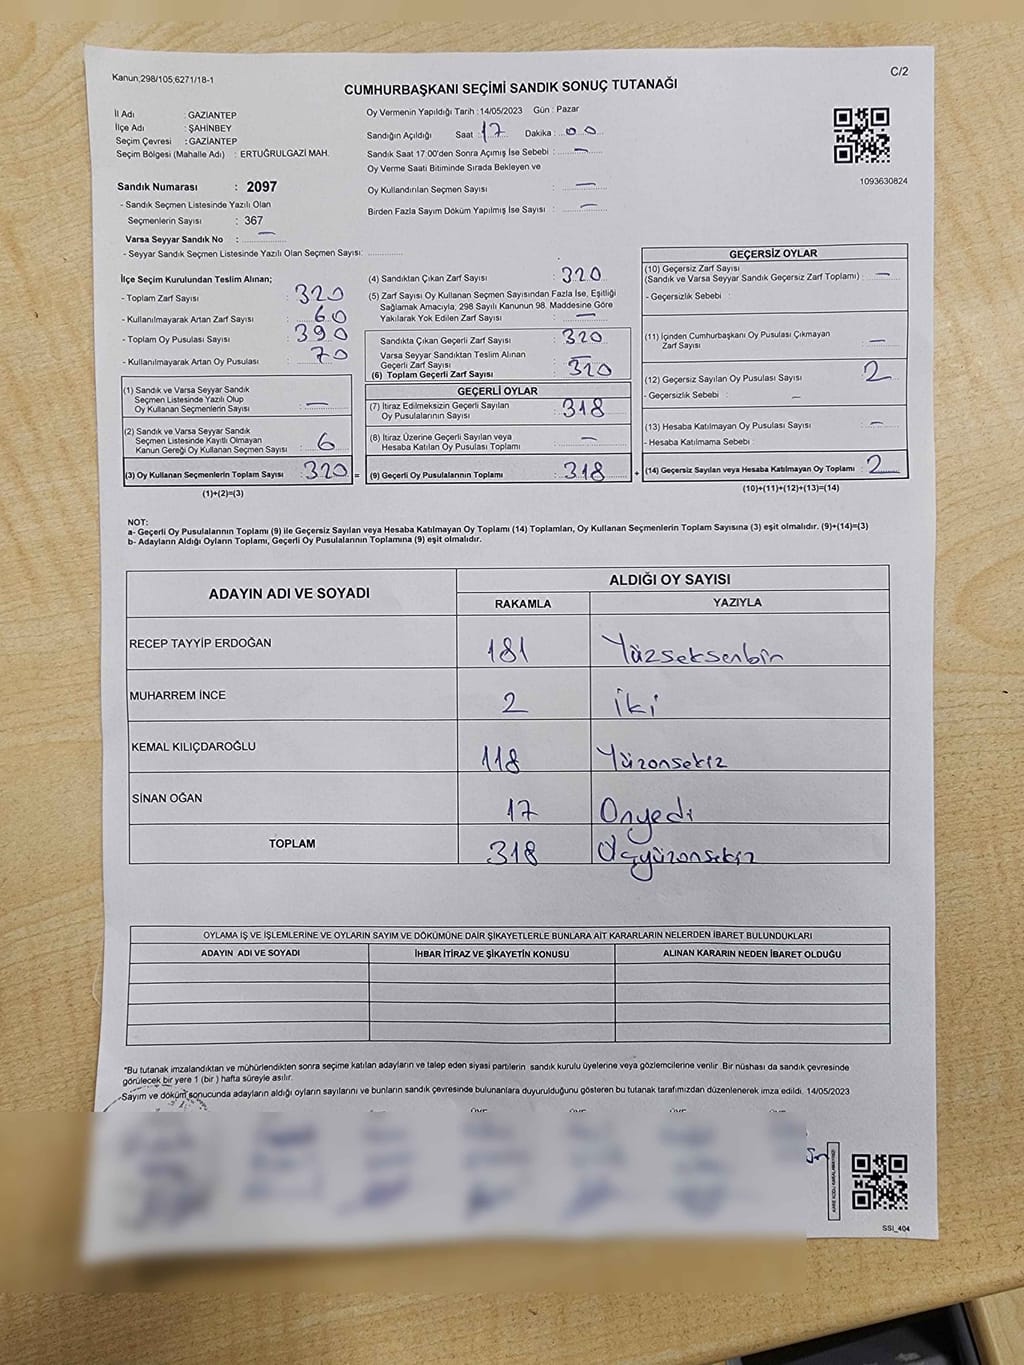 Kanun,298/105,6271/18-1
C/2
CUMHURBAŞKANI SEÇİMİ SANDIK SONUÇ TUTANAĞI
İl Adı : GAZİANTEP
İlçe Adı : ŞAHİNBEY
Seçim Çevresi : GAZİANTEP
Seçim Bölgesi (Mahalle Adı) : ERTUĞRULGAZİ MAH.
Sandık Numarası : 2097
- Sandık Seçmen Listesinde Yazılı Olan
Seçmenlerin Sayısı : 367
Varsa Seyyar Sandık No : —
- Seyyar Sandık Seçmen Listesinde Yazılı Olan Seçmen Sayısı: ............
Oy Vermenin Yapıldığı Tarih : 14/05/2023 Gün : Pazar
Sandığın Açıldığı Saat : 17 Dakika : 00
Sandık Saat 17.00'den Sonra Açımış İse Sebebi : —
Oy Verme Saati Bitiminde Sırada Bekleyen ve
Oy Kullandırılan Seçmen Sayısı : —
Birden Fazla Sayım Döküm Yapılmış İse Sayısı : —
1093630824
İlçe Seçim Kurulundan Teslim Alınan;
- Toplam Zarf Sayısı : 320
- Kullanılmayarak Artan Zarf Sayısı : 60
- Toplam Oy Pusulası Sayısı : 390
- Kullanılmayarak Artan Oy Pusulası : 70
(1) Sandık ve Varsa Seyyar Sandık
Seçmen Listesinde Yazılı Olup
Oy Kullanan Seçmenlerin Sayısı : —
(2) Sandık ve Varsa Seyyar Sandık
Seçmen Listesinde Kayıtlı Olmayan
Kanun Gereği Oy Kullanan Seçmen Sayısı : 6
(3) Oy Kullanan Seçmenlerin Toplam Sayısı : 320 =
(1)+(2)=(3)
(4) Sandıktan Çıkan Zarf Sayısı : 320
(5) Zarf Sayısı Oy Kullanan Seçmen Sayısından Fazla İse, Eşitliği
Sağlamak Amacıyla, 298 Sayılı Kanunun 98. Maddesine Göre
Yakılarak Yok Edilen Zarf Sayısı : —
Sandıkta Çıkan Geçerli Zarf Sayısı : 320
Varsa Seyyar Sandıktan Teslim Alınan
Geçerli Zarf Sayısı : —
(6) Toplam Geçerli Zarf Sayısı : 320
GEÇERLİ OYLAR
(7) İtiraz Edilmeksizin Geçerli Sayılan
Oy Pusulalarının Sayısı : 318
(8) İtiraz Üzerine Geçerli Sayılan veya
Hesaba Katılan Oy Pusulası Toplamı : —
(9) Geçerli Oy Pusulalarının Toplamı : 318 +
GEÇERSİZ OYLAR
(10) Geçersiz Zarf Sayısı
(Sandık ve Varsa Seyyar Sandık Geçersiz Zarf Toplamı) : —
- Geçersizlik Sebebi :
(11) İçinden Cumhurbaşkanı Oy Pusulası Çıkmayan
Zarf Sayısı : —
(12) Geçersiz Sayılan Oy Pusulası Sayısı : 2
- Geçersizlik Sebebi : —
(13) Hesaba Katılmayan Oy Pusulası Sayısı : —
- Hesaba Katılmama Sebebi :
(14) Geçersiz Sayılan veya Hesaba Katılmayan Oy Toplamı : 2
(10)+(11)+(12)+(13)=(14)
NOT:
a- Geçerli Oy Pusulalarının Toplamı (9) ile Geçersiz Sayılan veya Hesaba Katılmayan Oy Toplamı (14) Toplamları, Oy Kullanan Seçmenlerin Toplam Sayısına (3) eşit olmalıdır. (9)+(14)=(3)
b- Adayların Aldığı Oyların Toplamı, Geçerli Oy Pusulalarının Toplamına (9) eşit olmalıdır.
ADAYIN ADI VE SOYADI
ALDIĞI OY SAYISI
RAKAMLA YAZIYLA
RECEP TAYYİP ERDOĞAN 181 Yüzseksenbir
MUHARREM İNCE 2 iki
KEMAL KILIÇDAROĞLU 118 Yüzonsekiz
SİNAN OĞAN 17 Onyedi
TOPLAM 318 Üçyüzonsekiz
OYLAMA İŞ VE İŞLEMLERİNE VE OYLARIN SAYIM VE DÖKÜMÜNE DAİR ŞİKAYETLERLE BUNLARA AİT KARARLARIN NELERDEN İBARET BULUNDUKLARI
ADAYIN ADI VE SOYADI İHBAR İTİRAZ VE ŞİKAYETİN KONUSU ALINAN KARARIN NEDEN İBARET OLDUĞU
*Bu tutanak imzalandıktan ve mühürlendikten sonra seçime katılan adayların ve talep eden siyasi partilerin sandık kurulu üyelerine veya gözlemcilerine verilir. Bir nüshası da sandık çevresinde
görülecek bir yere 1 (bir ) hafta süreyle asılır.
-Sayım ve döküm sonucunda adayların aldığı oyların sayılarını ve bunların sandık çevresinde bulunanlara duyurulduğunu gösteren bu tutanak tarafımızdan düzenlenerek imza edildi. 14/05/2023
SSI_404